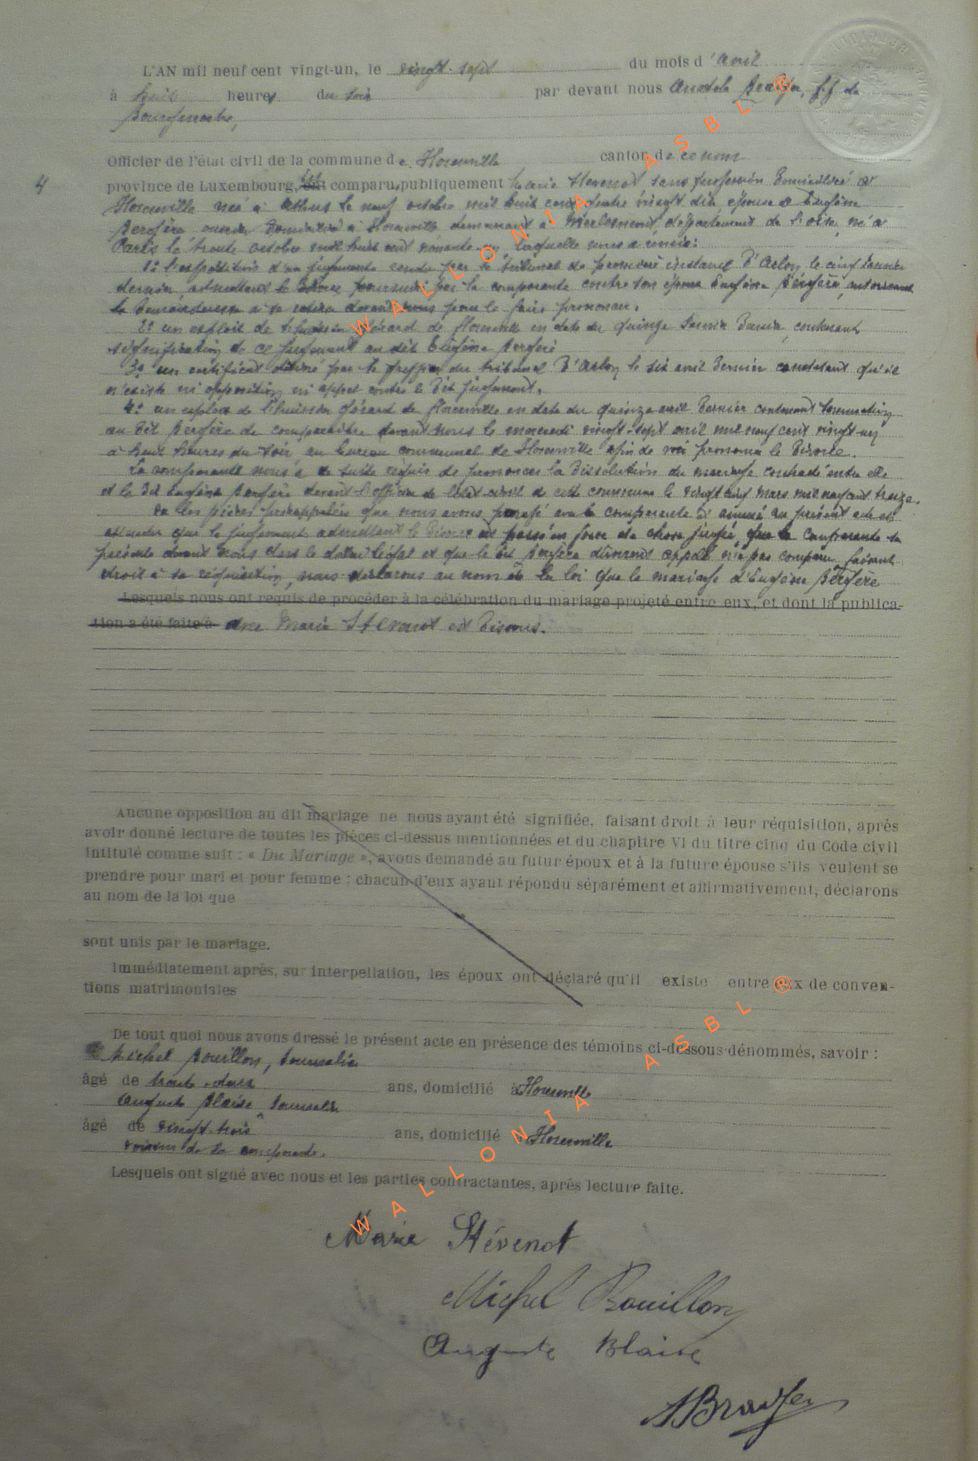 L'AN mil neuf cent vingt-un, le vingt-sept du mois d'avril
à huit heures du soir par devant nous Anatole f.f. de
Bourgmestre,
Officier de l'état civil de la commune de Florenville canton de ce nom
4
province de Luxembourg, comparu publiquement Marie Stevenot sans profession domiciliée à
Florenville née à Athus le neuf octobre mil huit cent vingt dix épouse d'Eugène
Pergère ouvrier domicilié à Florenville demeurant à département de l'Oise né à
Paris le trente octobre mil huit cent laquelle nous a remis:
1° l'expédition d'un jugement rendu par le tribunal de première instance d'Arlon le cinq janvier
dernier admettant le divorce poursuivi par la comparante contre son époux Eugène Pergère, autorisant
la demanderesse à se retirer devant nous pour le faire prononcer.
2° un exploit de l'huissier Gérard de Florenville en date du quinze janvier dernier, contenant
signification de ce jugement au dit Eugène Pergère
3° un certificat délivré par le greffier du tribunal d'Arlon le six avril dernier constatant qu'il
n'existe ni opposition ni appel contre le dit jugement.
4° un exploit de l'huissier Gérard de Florenville en date du quinze avril dernier contenant sommation
au dit Pergère de comparaître devant nous le mercredi vingt-sept avril mil neuf cent vingt-un
à huit heures du soir au bureau communal de Florenville afin de voir prononcer le divorce.
La comparante nous a de suite requis de prononcer la dissolution du mariage contracté entre elle
et le dit Eugène Pergère devant l'officier de l'état civil de cette commune le vingt cinq mars mil neuf cent treize.
Vu les pièces prérappelées que nous avons paraphé avec la comparante et annexé au présent acte et
attendu que le jugement admettant le divorce est passé en force de chose jugée, que la comparante se
présente devant nous dans le délai légal et que le dit Pergère dûment appelé n'a pas comparu, faisant
droit à sa réquisition, nous déclarons au nom de la loi que le mariage d'Eugène Pergère
Lesquels nous ont requis de procéder à la célébration du mariage projeté entre eux, et dont la publica-
tion a été faite à avec Marie Stevenot est dissous.
Aucune opposition au dit mariage ne nous ayant été signifiée, faisant droit à leur réquisition, après
avoir donné lecture de toutes les pièces ci-dessus mentionnées et du chapitre VI du titre cinq du Code civil
intitulé comme suit : « Du Mariage », avons demandé au futur époux et à la future épouse s'ils veulent se
prendre pour mari et pour femme : chacun d'eux ayant répondu séparément et affirmativement, déclarons
au nom de la loi que
sont unis par le mariage.
Immédiatement après, sur interpellation, les époux ont déclaré qu'il existe entre eux de conven-
tions matrimoniales
De tout quoi nous avons dressé le présent acte en présence des témoins ci-dessous dénommés, savoir :
Michel Bouillon, journalier
âgé de trente-deux ans, domicilié à Florenville
Auguste Blaise, journalier
âgé de vingt-trois ans, domicilié à Florenville
voisins de la comparante.
Lesquels ont signé avec nous et les parties contractantes, après lecture faite.
Marie Stévenot
Michel Bouillon
Auguste Blaise
WALLONIA ASBL ®
WALLONIA ASBL ®